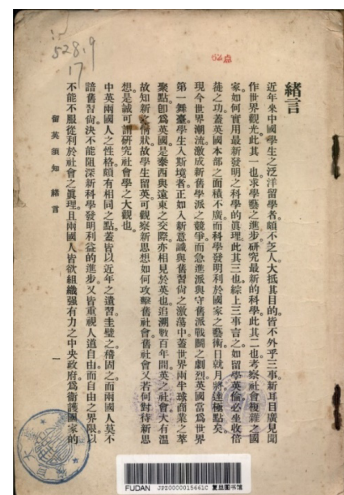 528.9
17
緒言
近年來中國學生之泛洋留學者頗不乏人大抵其目的皆不外乎三事新耳目廣見聞
作世界觀光此其一也求學藝之進步研究最新的科學此其二也考察社會複雜之國
家如何實用最新發明之科學的眞理此其三也綜上三事言之如留學英倫必坐收倍
蓰之功蓋英國本部之面積不廣而科學發明利於國家之藝術日就月將達極點矣
現今世界潮流激成新舊學派之競爭而急進派與守舊派戰鬬之劇烈英國當爲世界
第一舞臺學生入斯境者正如入新意識與舊習尙之激蕩中蓋世界兩半球商業之萃
聚點卽爲英國是泰西與遠東之交際亦相見於英也追溯數百年間英之社會大有溫
故知新之情狀故學生留英可觀察新思想如何攻擊舊社會舊社會又若何對待新思
想是誠可謂研究社會學之大觀也
中英兩國人之性格頗有相同之點蓋皆以近年之遺習圭璧之稽固之而兩國人莫不
諳舊習尙決不能阻深新科學發明利益的進步又皆重視人道自由而自由之界限以
不能不服從利於社會之眞理且兩國人皆欲組織强有力之中央政府爲衞護國家的
留英須知 緒言
一
FUDAN JP200000015641C 复旦图书馆